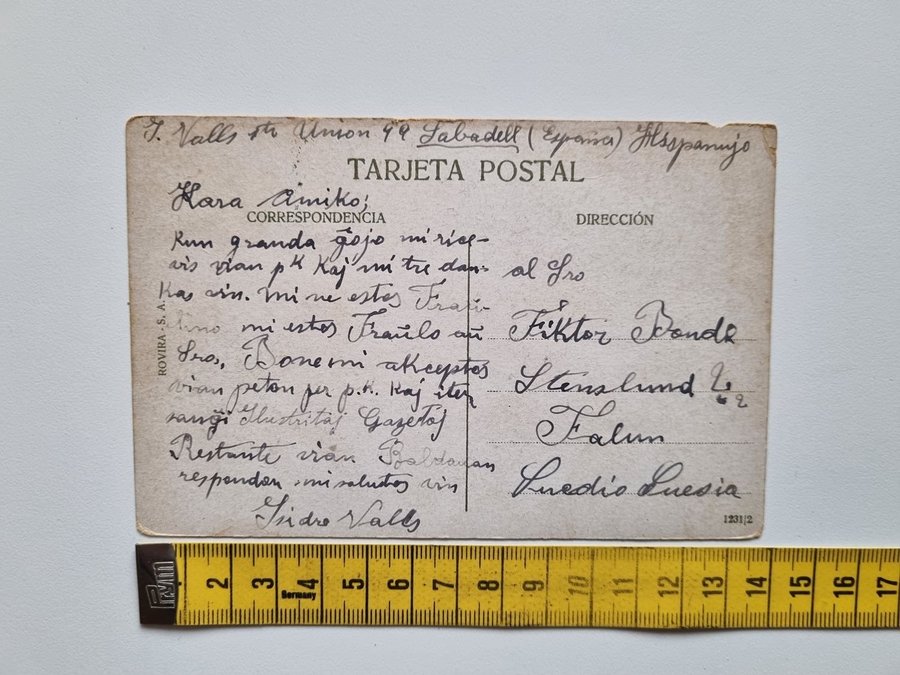 I. Valls Union 99 Sabadell (España) Hispanujo
TARJETA POSTAL
Kara Amiko;
CORRESPONDENCIA
DIRECCIÓN
Kun granda ĝojo mi rice-
vis vian pk Kaj mi tre dan-
Kas vin. mi ne estas Fraŭ-
lino mi estas Fraŭlo aŭ
Sro, Bone mi akceptas
vian peton per p.k. Kaj
sanĝi Ilustritaj Gazetoj
Restante vian Baldaŭan
respondon mi salutas vin
Isidro Valls
al Sro
Fiktor Bonde
Stenslund
Falun
Suedio Suesia
ROVIRA - S. A.
1231/2
PVM
Germany
2 3 4 5 6 7 8 9 10 11 12 13 14 15 16 17